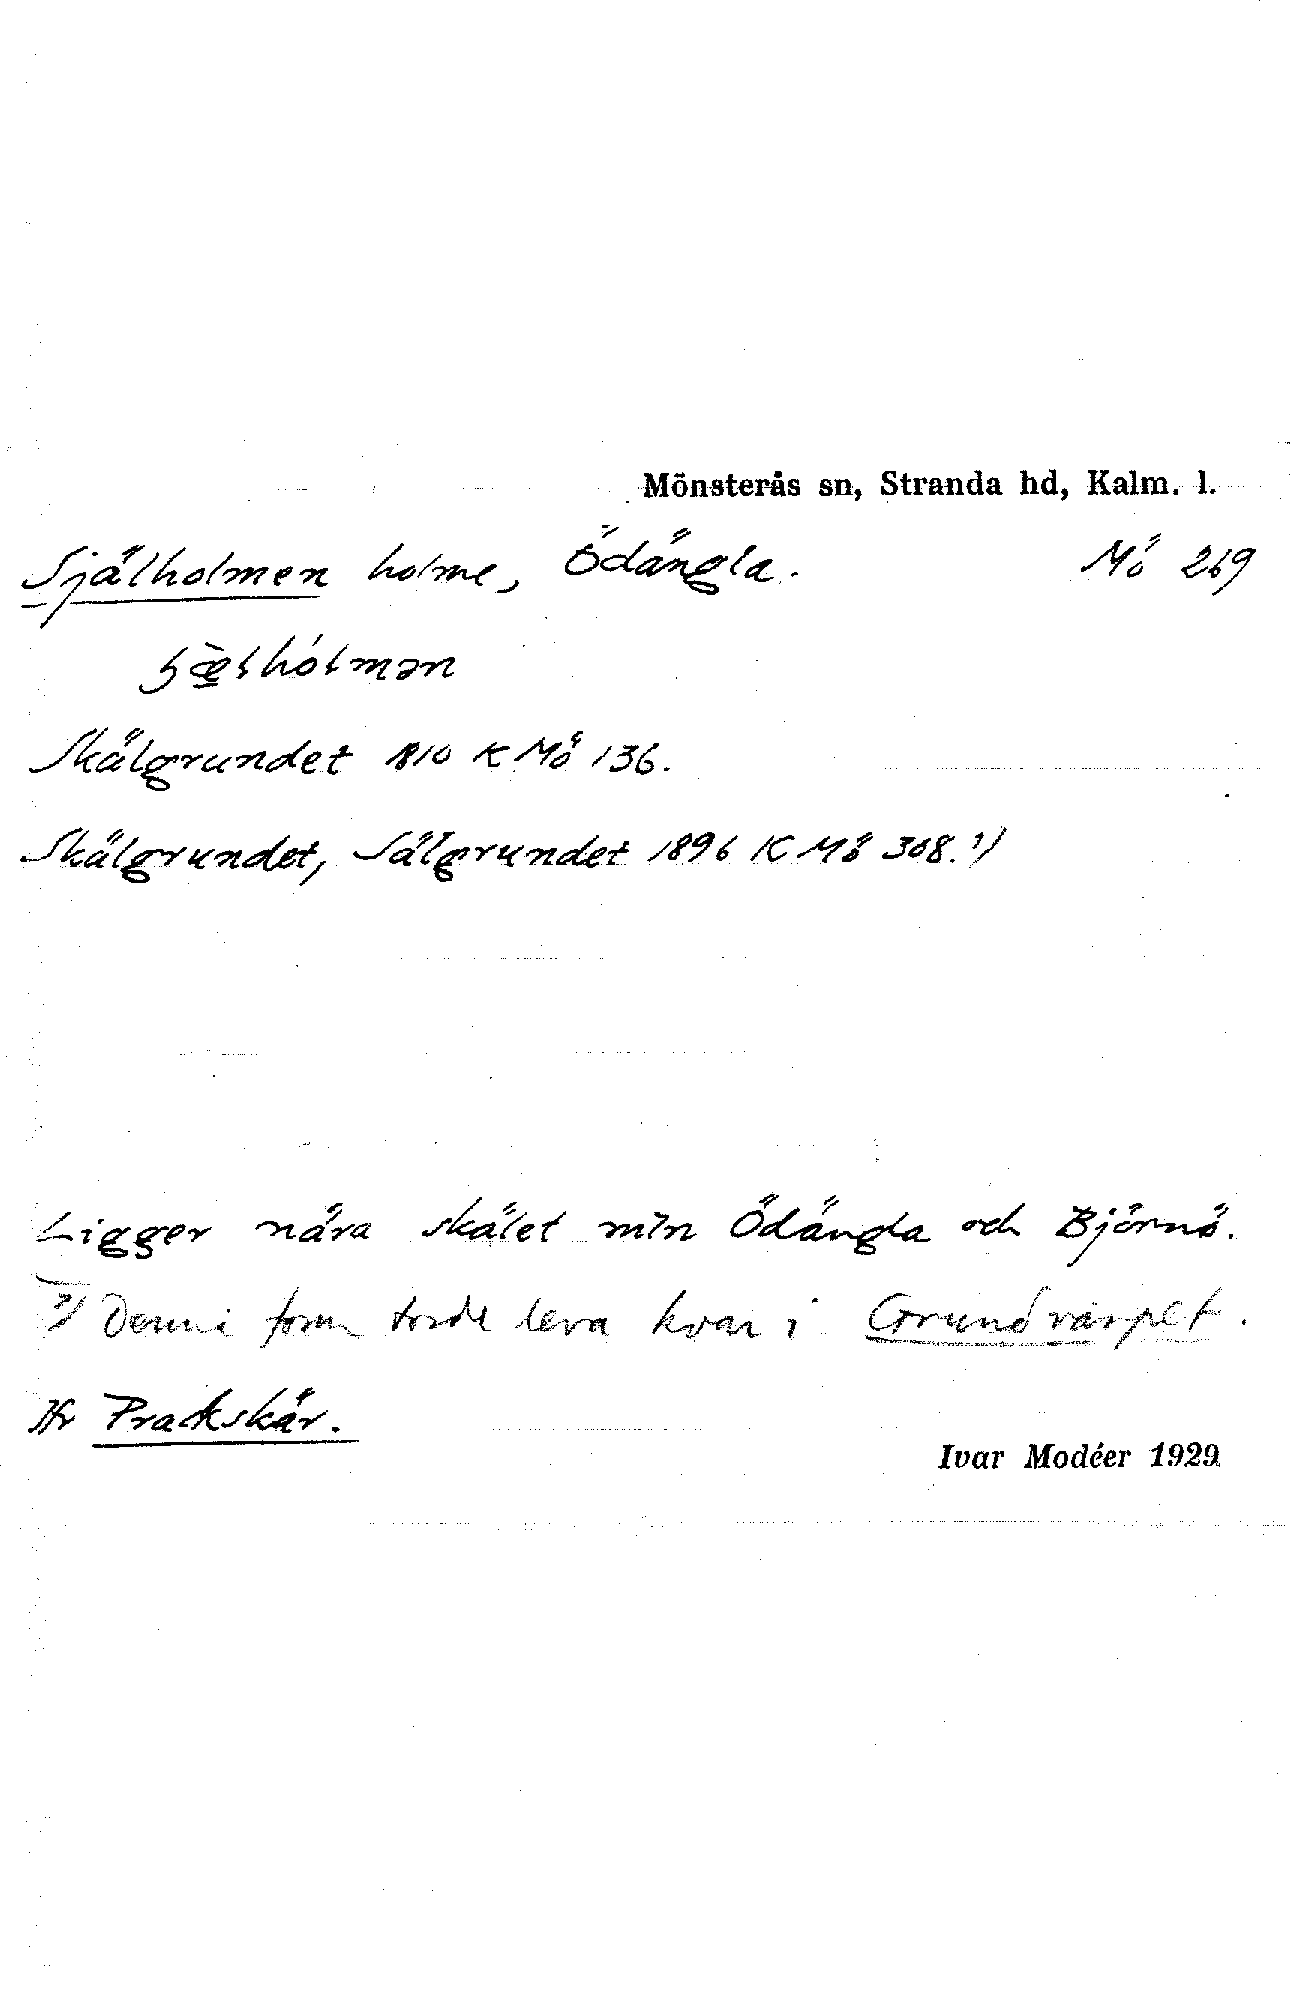 Mönsterås sn, Stranda hd, Kalm. l.
Själholmen holme, Ödängla. Mö 269
Skälgrundet 1810 K Mö 136.
Skälgrundet, Sälgrundet 1896 K Mö 308.¹⁾
Ligger nära skälet mln Ödängla och Björnö.
¹⁾ Denna form torde leva kvar i Grundvarpet.
Jfr Prackskär.
Ivar Modéer 1929